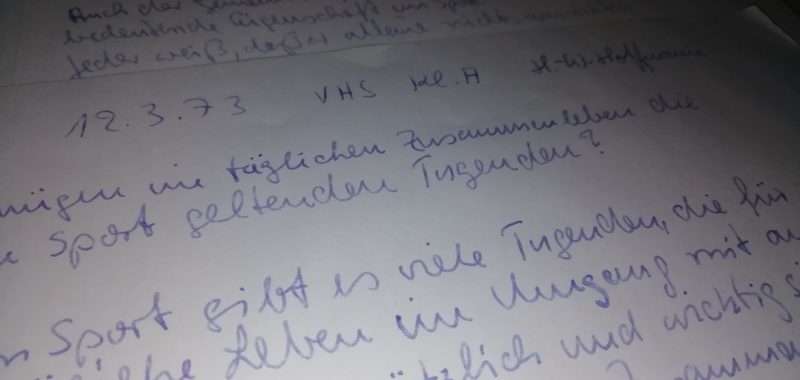 Auch der
bedeutende Eigenschaft im Sport.
Jeder weiß, daß er alleine nicht
12.3.73 VHS Kl. A H.-W. Hoffmann
im täglichen Zusammenleben die
Sport geltenden Tugenden?
Sport gibt es viele Tugenden, die für
Leben im Umgang mit
und wichtig